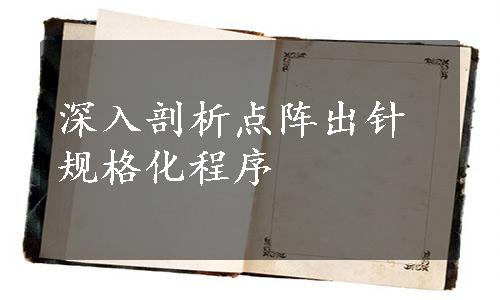 深入剖析点阵出针
规格化程序